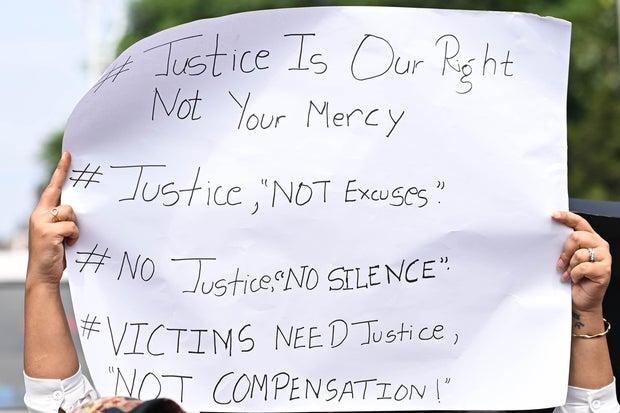 # Justice Is Our Right
Not Your Mercy
# Justice, "NOT Excuses".
# NO Justice, "NO SILENCE".
# VICTIMS NEED Justice,
"NOT COMPENSATION!"